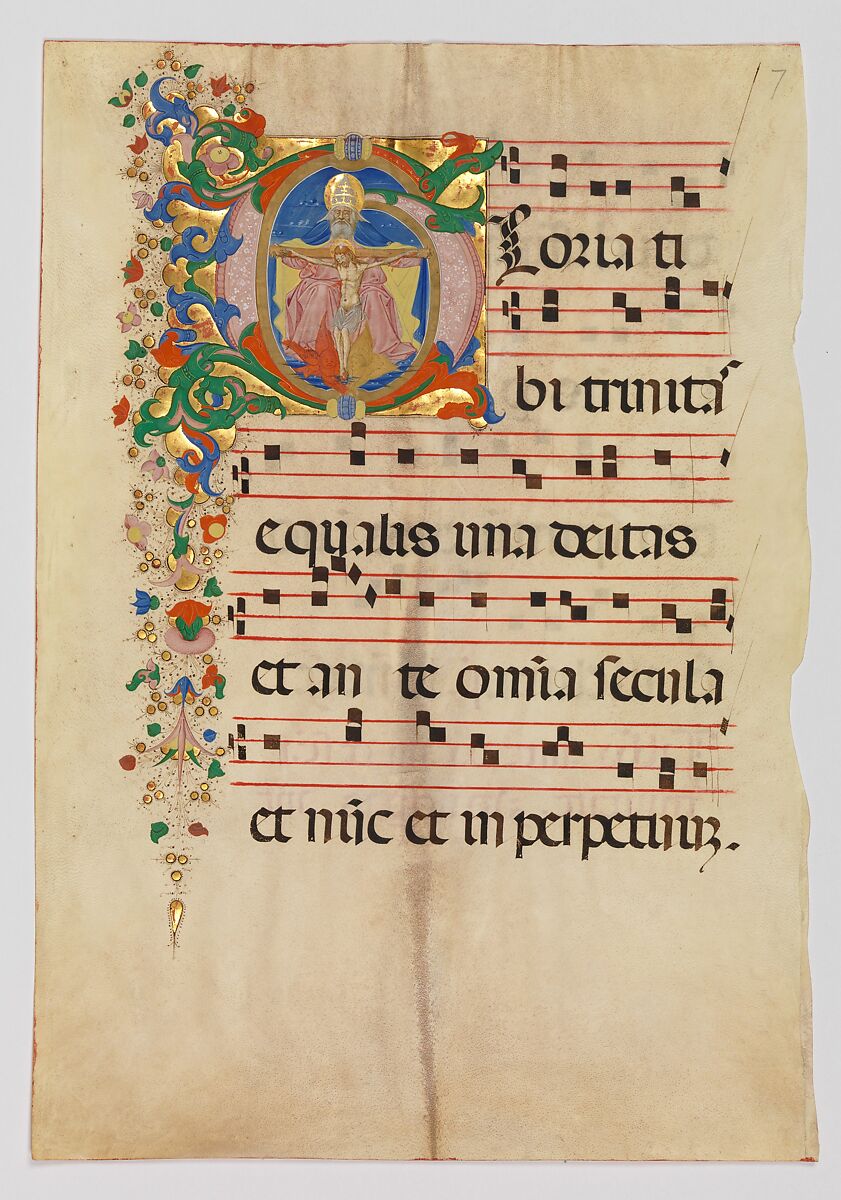 7
GLoria ti
bi trinitas
equalis una deitas
et an te om̄ia secula
et nūc et in perpetuuʒ.